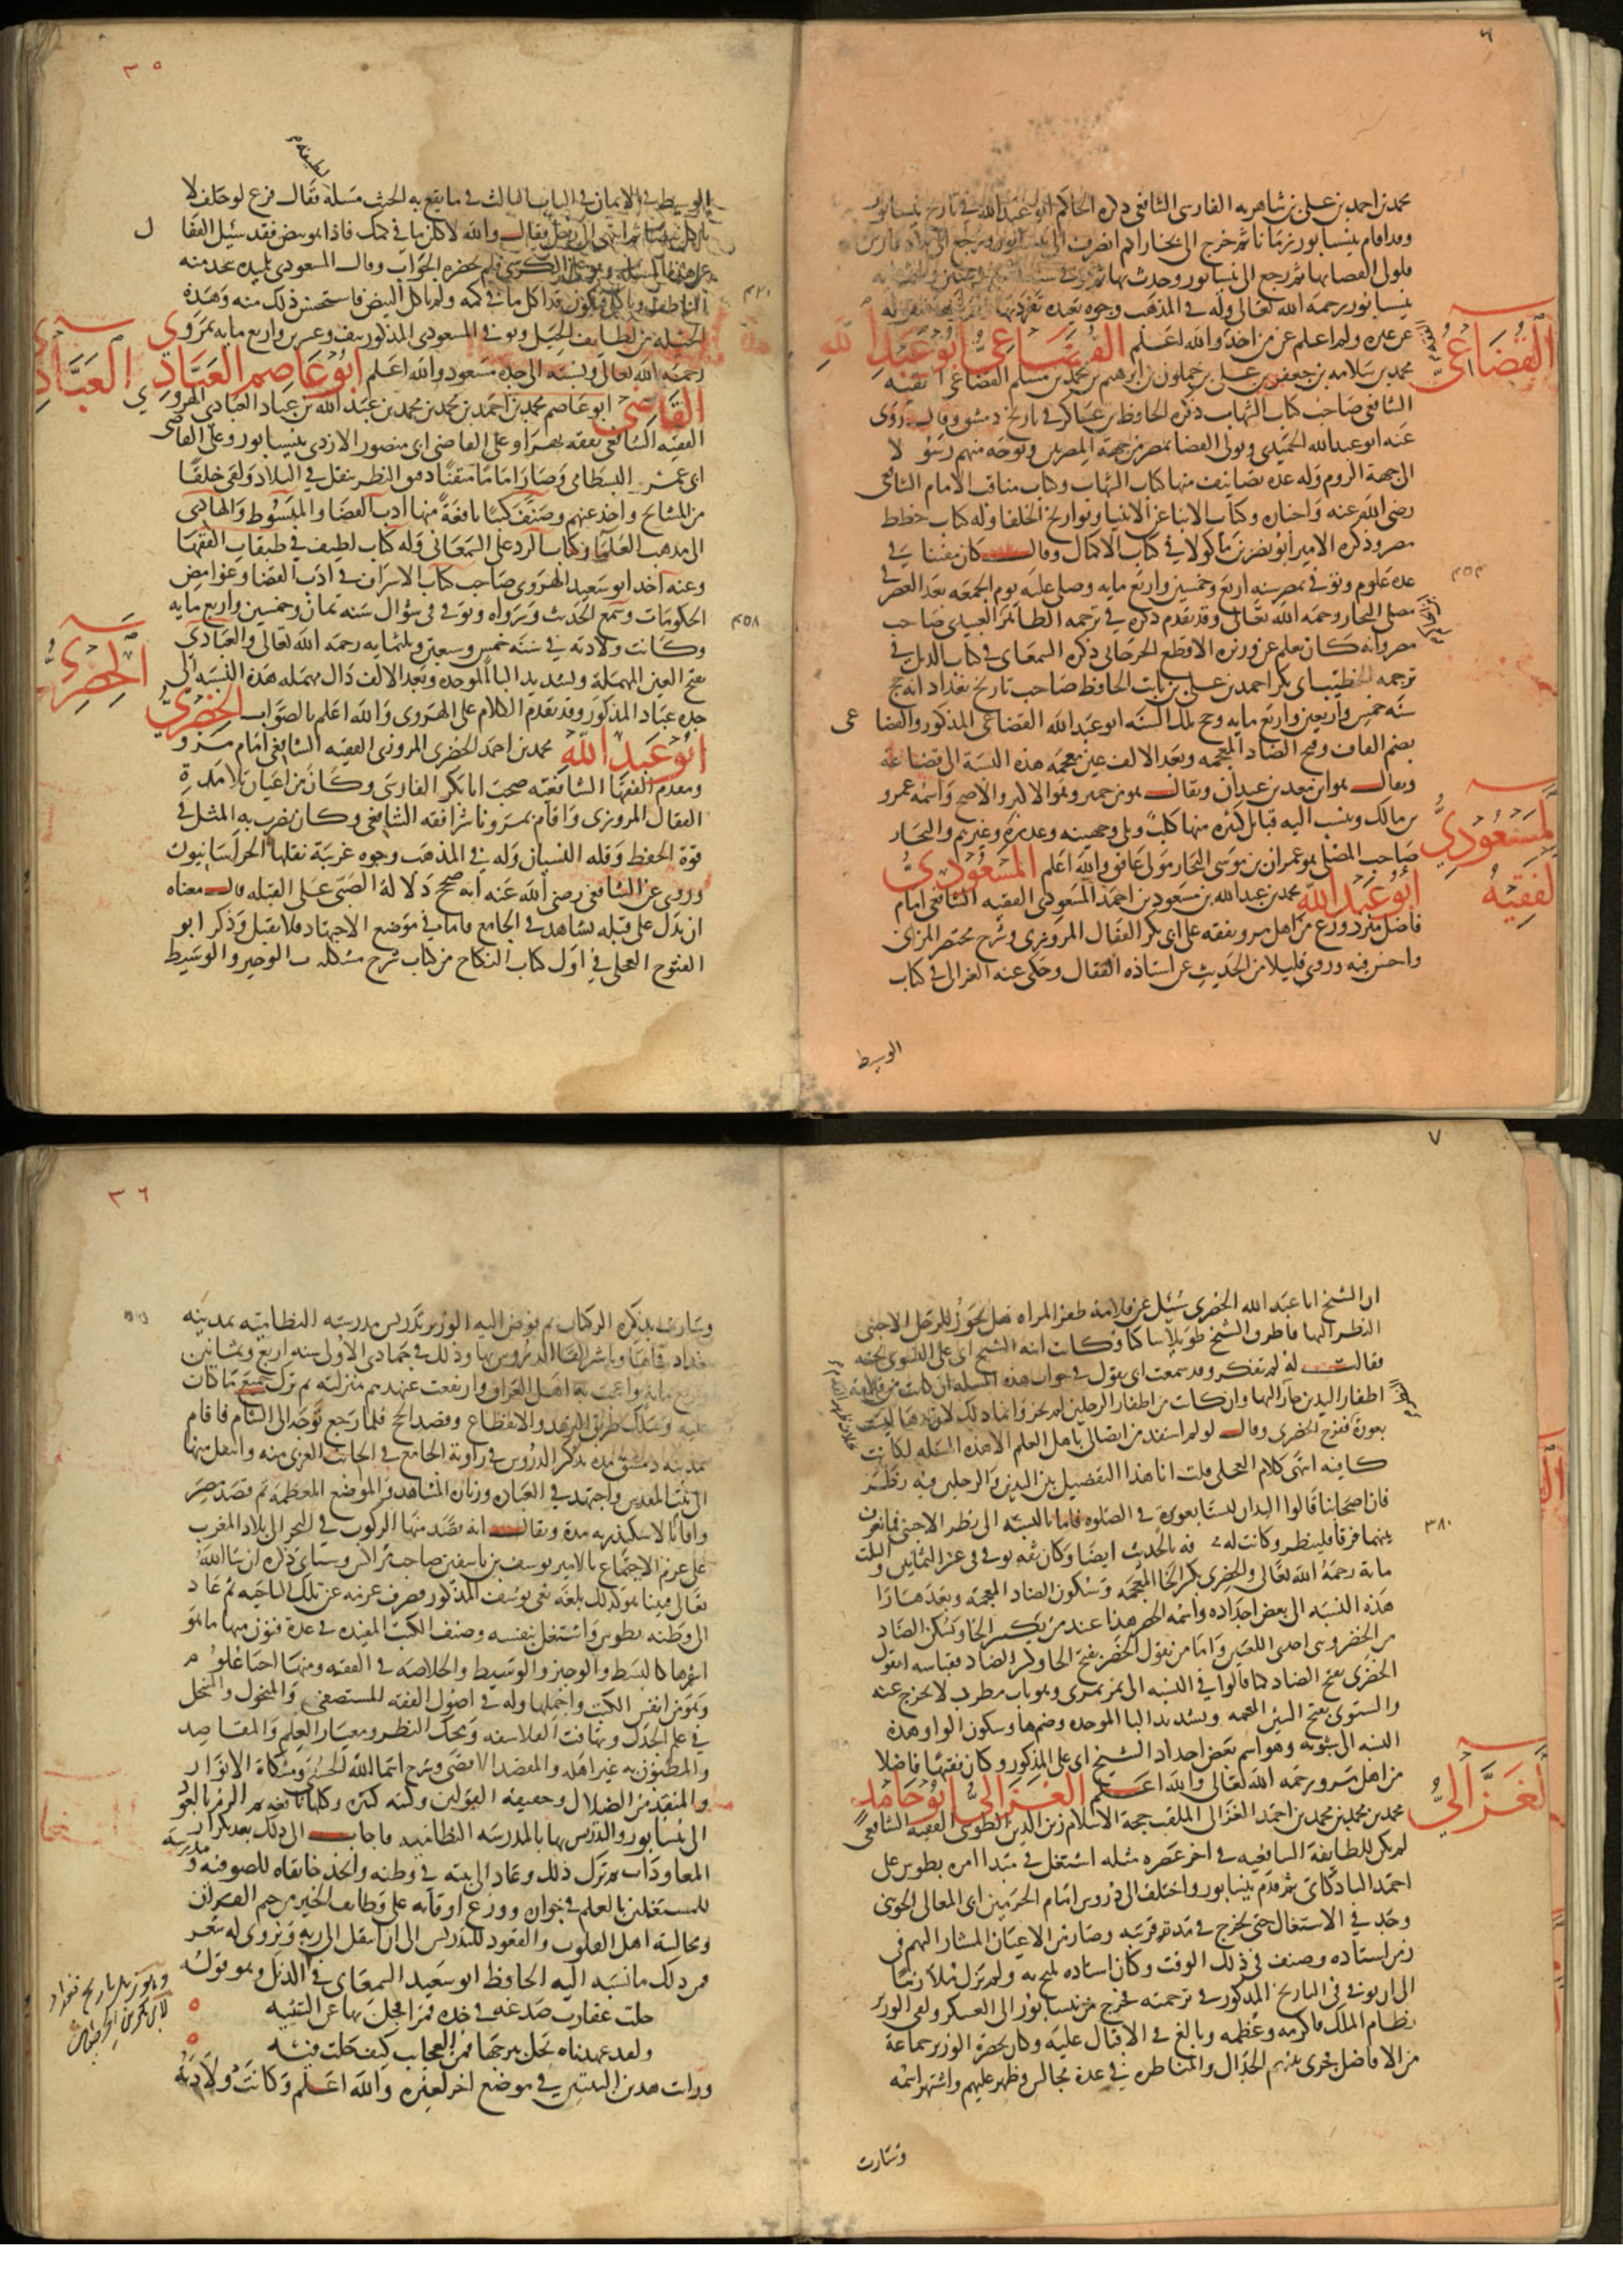 ٦
محمد بن احمد بن علي بن شاهويه الفارسي الشافعي ذكره الحاكم ابو عبد الله في تاريخ نيسابور
وقد اقام بنيسابور زمانا ثم خرج الى بخارا ثم انصرف الى نيسابور ورجع الى بلاد فارس
فولي القضا بها ثم رجع الى نيسابور وحدث بها
بنيسابور رحمه الله تعالى وله في المذهب وجوه بعيده تفرد بها
عن غيره ولم اعلم عن من اخذ والله اعلم القضاعي ابو عبد الله
القضاعي
محمد بن سلامه بن جعفر بن علي بن حكمون بن ابرهيم بن محمد بن مسلم القضاعي الفقيه
الشافعي صاحب كتاب الشهاب ذكره الحافظ بن عساكر في تاريخ دمشق وقال روى
عنه ابو عبد الله الحميدي وتولى القضا بمصر من جهة المصريين وتوجه منهم رسولا
الى جهة الروم وله عدة تصانيف منها كتاب الشهاب وكتاب مناقب الامام الشافعي
رضي الله عنه واخباره وكتاب الانبا عن الانبيا وتواريخ الخلفا وله كتاب خطط
مصر وذكره الامير ابو نصر بن ماكولا في كتاب الاكمال وقال كان مفننا في
عدة علوم وتوفي بمصر سنه اربع وخمسين واربع مايه وصلي عليه يوم الجمعه بعد العصر في
٤٥٤
مصلى النجار رحمه الله تعالى وقد تقدم ذكره في ترجمه الظاهر العبيدي صاحب
مصر وانه كان يعلم عن وزيره الاقطع الجرجاني ذكره السمعاني في كتاب الذيل في
ترجمه الخطيب ابي بكر احمد بن علي بن ثابت الحافظ صاحب تاريخ بغداد انه حج
سنه خمس واربعين واربع مايه وحج تلك السنه ابو عبد الله القضاعي المذكور والقضاعي
بضم القاف وفتح الضاد المعجمه وبعد الالف عين مهمله هذه النسبة الى قضاعة
ويقال هو ابن معد بن عدنان ويقال هو من حمير وهو الاكثر والاصح واسمه عمرو
بن مالك وينسب اليه قبايل كثيره منها كلب وبلي وجهينه وعذرة وغيرهم والنجار
صاحب المصلى هو عمران بن موسى النجار مولى غافق والله اعلم المسعودي
المسعودي
الفقيه
ابو عبد الله محمد بن عبد الله بن مسعود بن احمد المسعودي الفقيه الشافعي امام
فاضل مبرز ورع من اهل مرو تفقه على ابي بكر القفال المروزي وشرح مختصر المزني
واحسن فيه وروى قليلا من الحديث عن استاذه القفال وحكى عنه الغزالي في كتاب
الوسيط
٣٥
الوسيط في الايمان في الباب الثالث في ما يقع به الحنث مسلة فقال فرع لو حلف لا
ياكل بيضا ثم انتهى الى رجل فقال والله لاكلن ما في كمك فاذا هو بيض فقد سئل القفال
عن هذه المسله وهو على الكرسي فلم يحضره الجواب وقال المسعودي تلميذه يتخذ منه
الناطف وياكل فيكون قد اكل ما في كمه ولم ياكل البيض فاستحسن ذلك منه وهذه
٤٢٠
الحيله من لطايف الحيل وتوفي المسعودي المذكور نيف وعشرين واربع مايه بمرو
رحمه الله تعالى ونسبته الى جده مسعود والله اعلم ابو عاصم العبادي
العبادي
القاضي ابو عاصم محمد بن احمد بن محمد بن محمد بن عبد الله بن عباد العبادي الهروي
الفقيه الشافعي تفقه بهراه على القاضي ابي منصور الازدي بنيسابور وعلى القاضي
ابي عمر البسطامي وصار اماما متقنا دقيق النظر تنقل في البلاد ولقي خلقا
من المشايخ واخذ عنهم وصنف كتبا نافعة منها ادب القضا والمبسوط والهادي
الى مذهب العلما وكتاب الرد على السمعاني وله كتاب لطيف في طبقات الفقها
وعنه اخذ ابو سعيد الهروي صاحب كتاب الاشراف في ادب القضا وغوامض
الحكومات وسمع الحديث ورواه وتوفي في شوال سنه ثمان وخمسين واربع مايه
٤٥٨
وكانت ولادته في سنه خمس وسبعين وثلثمايه رحمه الله تعالى والعبادي
بفتح العين المهملة وتشديد البا الموحده وبعد الالف دال مهمله هذه النسبه الى
جده عباد المذكور وقد تقدم الكلام على الهروي والله اعلم بالصواب الخضري
الخضري
ابو عبد الله محمد بن احمد الخضري المروزي الفقيه الشافعي امام مرو
ومقدم الفقها الشافعيه صحب ابا بكر الفارسي وكان من اعيان تلامذة
القفال المروزي واقام بمرو ناشرا فقه الشافعي وكان يضرب به المثل في
قوة الحفظ وقله النسيان وله في المذهب وجوه غريبة نقلها الخراسانيون
وروى عن الشافعي رضي الله عنه انه صحح دلالة الصبي على القبله قال معناه
ان يدل على قبله تشاهد في الجامع فاما في موضع الاجتهاد فلا يقبل وذكر ابو
الفتوح العجلي في اول كتاب النكاح من كتاب شرح مشكلات الوجيز والوسيط
٧
ان الشيخ ابا عبد الله الخضري سئل عن قلامة ظفر المراه هل يجوز للرجل الاجنبي
النظر اليها فاطرق الشيخ طويلا ساكتا وكانت ابنه الشيخ ابي علي الشبوي تحته
فقالت له لم تفكر وقد سمعت ابي يقول في جواب هذه المسله ان كانت من قلامة
اظفار اليدين جاز النظر اليها وان كانت من اظفار الرجلين لم يجز وانما ذلك لان يدها ليست
بعورة ففرح الخضري وقال لو لم استفد من اتصالي باهل العلم الا هذه المسله لكانت
كافيه انتهى كلام العجلي قلت انا هذا التفصيل بين اليدين والرجلين فيه نظر
فان اصحابنا قالوا اليدان ليستا بعورة في الصلوه فاما بالنسبه الى نظر الاجنبي فما نعرف
بينهما فرقا فلينظر وكانت له معرفه بالحديث ايضا وكان ثقه توفي في عشر الثمانين والثلث
٣٨٠
ماية رحمه الله تعالى والخضري بكسر الخا المعجمه وسكون الضاد المعجمة وبعدها را
هذه النسبه الى بعض اجداده واسمه الخضر هذا عند من يكسر الخا ويسكن الضاد
من الخضر وهي احدى اللغتين واما من يقول الخضر بفتح الخا وكسر الضاد فقياسه ان يقول
الخضري بفتح الضاد كما قالوا في النسبه الى نمر نمري وهو باب مطرد لا يخرج عنه
والشبوي بفتح الشين المعجمه وتشديد البا الموحده وضمها وسكون الواو هذه
النسبه الى شبويه وهو اسم بعض اجداد الشيخ ابي علي المذكور وكان فقيها فاضلا
من اهل مرو رحمه الله تعالى والله اعلم الغزالي ابو حامد
الغزالي
محمد بن محمد بن محمد بن احمد الغزالي الملقب حجة الاسلام زين الدين الطوسي الفقيه الشافعي
لم يكن للطايفة الشافعيه في اخر عصره مثله اشتغل في مبدا امره بطوس على
احمد الراذكاني ثم قدم نيسابور واختلف الى دروس امام الحرمين ابي المعالي الجويني
وجد في الاشتغال حتى تخرج في مدة قريبه وصار من الاعيان المشار اليهم في
زمن استاذه وصنف في ذلك الوقت وكان استاذه يتبجح به ولم يزل ملازما
الى ان توفي في التاريخ المذكور في ترجمته فخرج من نيسابور الى العسكر ولقي الوزير
نظام الملك فاكرمه وعظمه وبالغ في الاقبال عليه وكان بحضرة الوزير جماعة
من الافاضل فجرى بينهم الجدال والمناظره في عدة مجالس وظهر عليهم واشتهر اسمه
وسارت
٣٦
وسارت بذكره الركبان ثم فوض اليه الوزير تدريس مدرسته النظاميه بمدينه
بغداد فجاها وباشر القا الدروس بها وذلك في جمادى الاولى سنه اربع وثمانين
واربع مايه واعجب به اهل العراق وارتفعت عندهم منزلته ثم ترك جميع ما كان
عليه وسلك طريق الزهد والانقطاع وقصد الحج فلما رجع توجه الى الشام فاقام
بمدينه دمشق مدة يذكر الدروس في زاوية الجامع في الجانب الغربي منه وانتقل منها
الى بيت المقدس واجتهد في العباده وزيارة المشاهد والمواضع المعظمه ثم قصد مصر
واقام بالاسكندريه مدة ويقال انه قصد منها الركوب في البحر الى بلاد المغرب
على عزم الاجتماع بالامير يوسف بن تاشفين صاحب مراكش وسياتي ذكره ان شا الله
تعالى فبينا هو كذلك بلغه نعي يوسف المذكور فصرف عزمه عن تلك الناحيه ثم عاد
الى وطنه بطوس واشتغل بنفسه وصنف الكتب المفيده في عدة فنون منها ما هو
اشهرها كالبسيط والوجيز والوسيط والخلاصه في الفقه ومنها احيا علوم
وهو من انفس الكتب واجملها وله في اصول الفقه المستصفى والمنخول والمنتحل
في علم الجدل وتهافت الفلاسفه ومحك النظر ومعيار العلم والمقاصد
والمظنون به غير اهله والمقصد الاقصى وشرح اسما الله الحسنى ومشكاة الانوار
والمنقذ من الضلال وحقيقه القولين وكتبه كثيره وكلها نافعه ثم الزم بالعود
الى نيسابور والتدريس بها بالمدرسه النظاميه فاجاب الى ذلك بعد تكرار
المعاودات ثم ترك ذلك وعاد الى بيته في وطنه واتخذ خانقاه للصوفيه ومدرسة
للمشتغلين بالعلم في جواره ووزع اوقاته على وظايف الخير من ختم القران
ومجالسة اهل القلوب والقعود للتدريس الى ان انتقل الى ربه ويروى له شعر
فمن ذلك ما نسبه اليه الحافظ ابو سعيد السمعاني في الذيل وهو قوله
وهو ذيل تاريخ بغداد
حلت عقارب صدغه في خده قمرا فجل بها عن التشبيه
ولقد عهدناه يحل ببرجها فمن العجايب كيف حلت فيه
ورايت هذين البيتين في موضع اخر لغيره والله اعلم وكانت ولادته